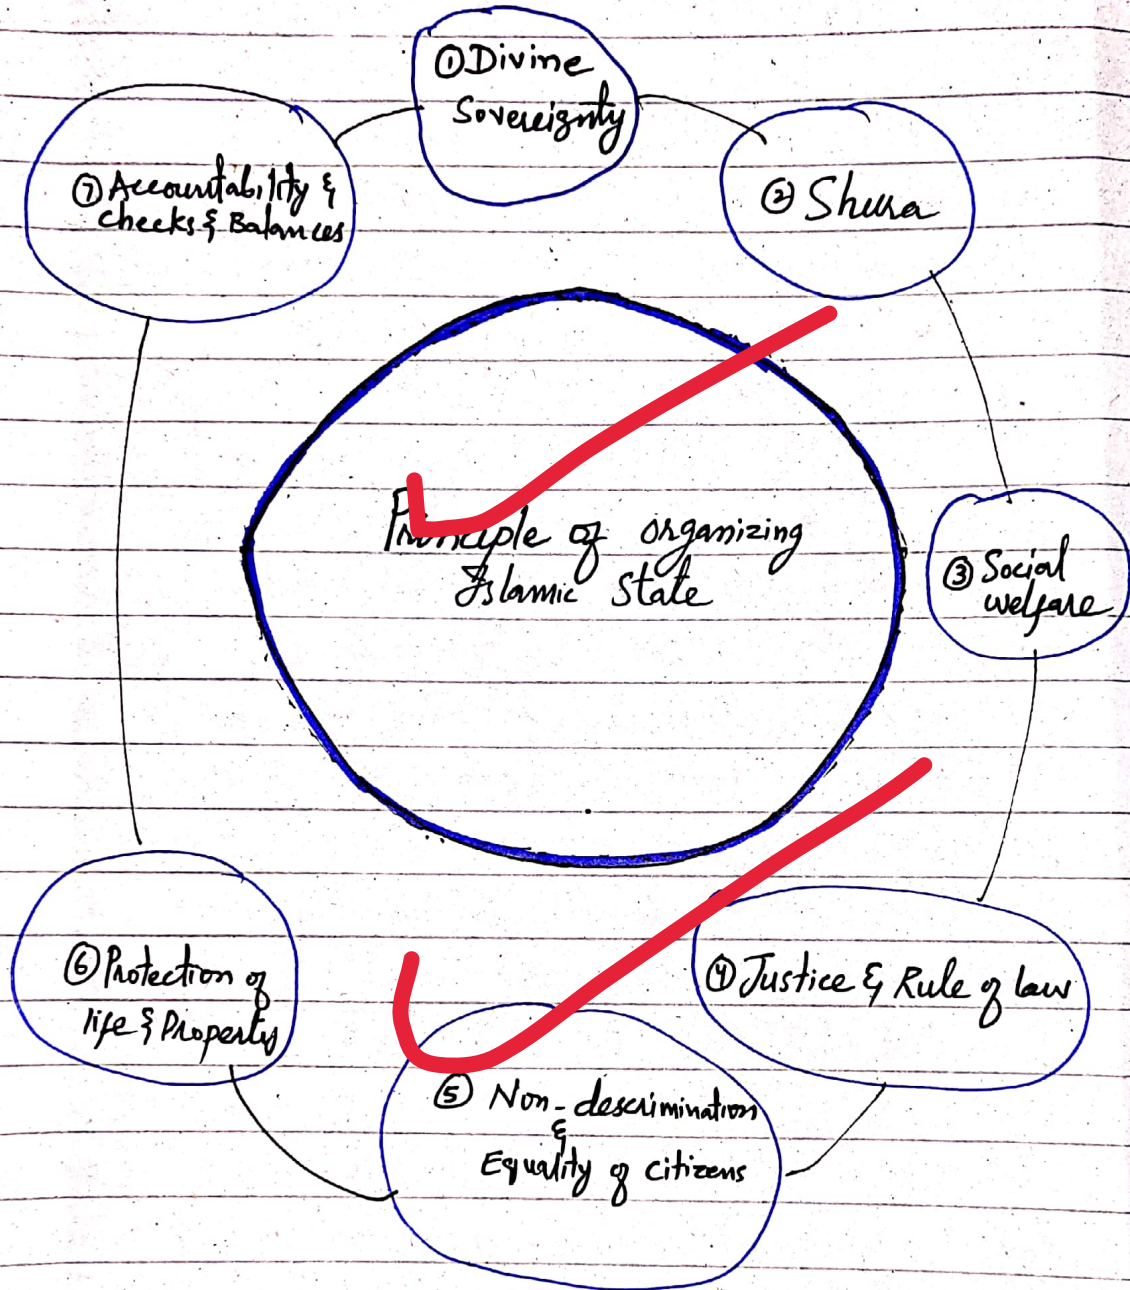 ① Divine
Sovereignty
② Shura
③ Social
welfare
④ Justice & Rule of law
⑤ Non-descrimination
&
Equality of citizens
⑥ Protection of
life & Property
⑦ Accountability &
checks & Balances
Principle of organizing
Islamic State